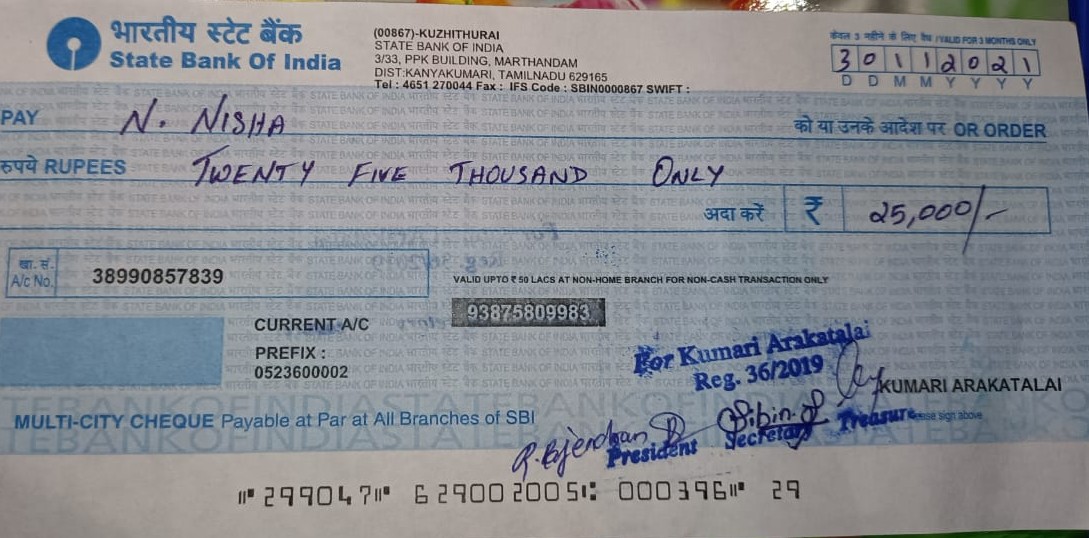 भारतीय स्टेट बैंक
State Bank Of India
(00867)-KUZHITHURAI
STATE BANK OF INDIA
3/33, PPK BUILDING, MARTHANDAM
DIST:KANYAKUMARI, TAMILNADU 629165
Tel : 4651 270044 Fax : IFS Code : SBIN0000867 SWIFT :
केवल 3 महीने के लिए वैध / VALID FOR 3 MONTHS ONLY
30112021
D D M M Y Y Y Y
PAY N. NISHA को या उनके आदेश पर OR ORDER
रुपये RUPEES TWENTY FIVE THOUSAND ONLY
अदा करें ₹ 25,000/-
खा. सं.
A/c No. 38990857839
VALID UPTO ₹ 50 LACS AT NON-HOME BRANCH FOR NON-CASH TRANSACTION ONLY
93875809983
CURRENT A/C
PREFIX :
0523600002
For Kumari Arakatalai
Reg. 36/2019
KUMARI ARAKATALAI
MULTI-CITY CHEQUE Payable at Par at All Branches of SBI
President Secretary Treasure
sign above
⑈299047⑈ 629002005⑆ 000396⑈ 29